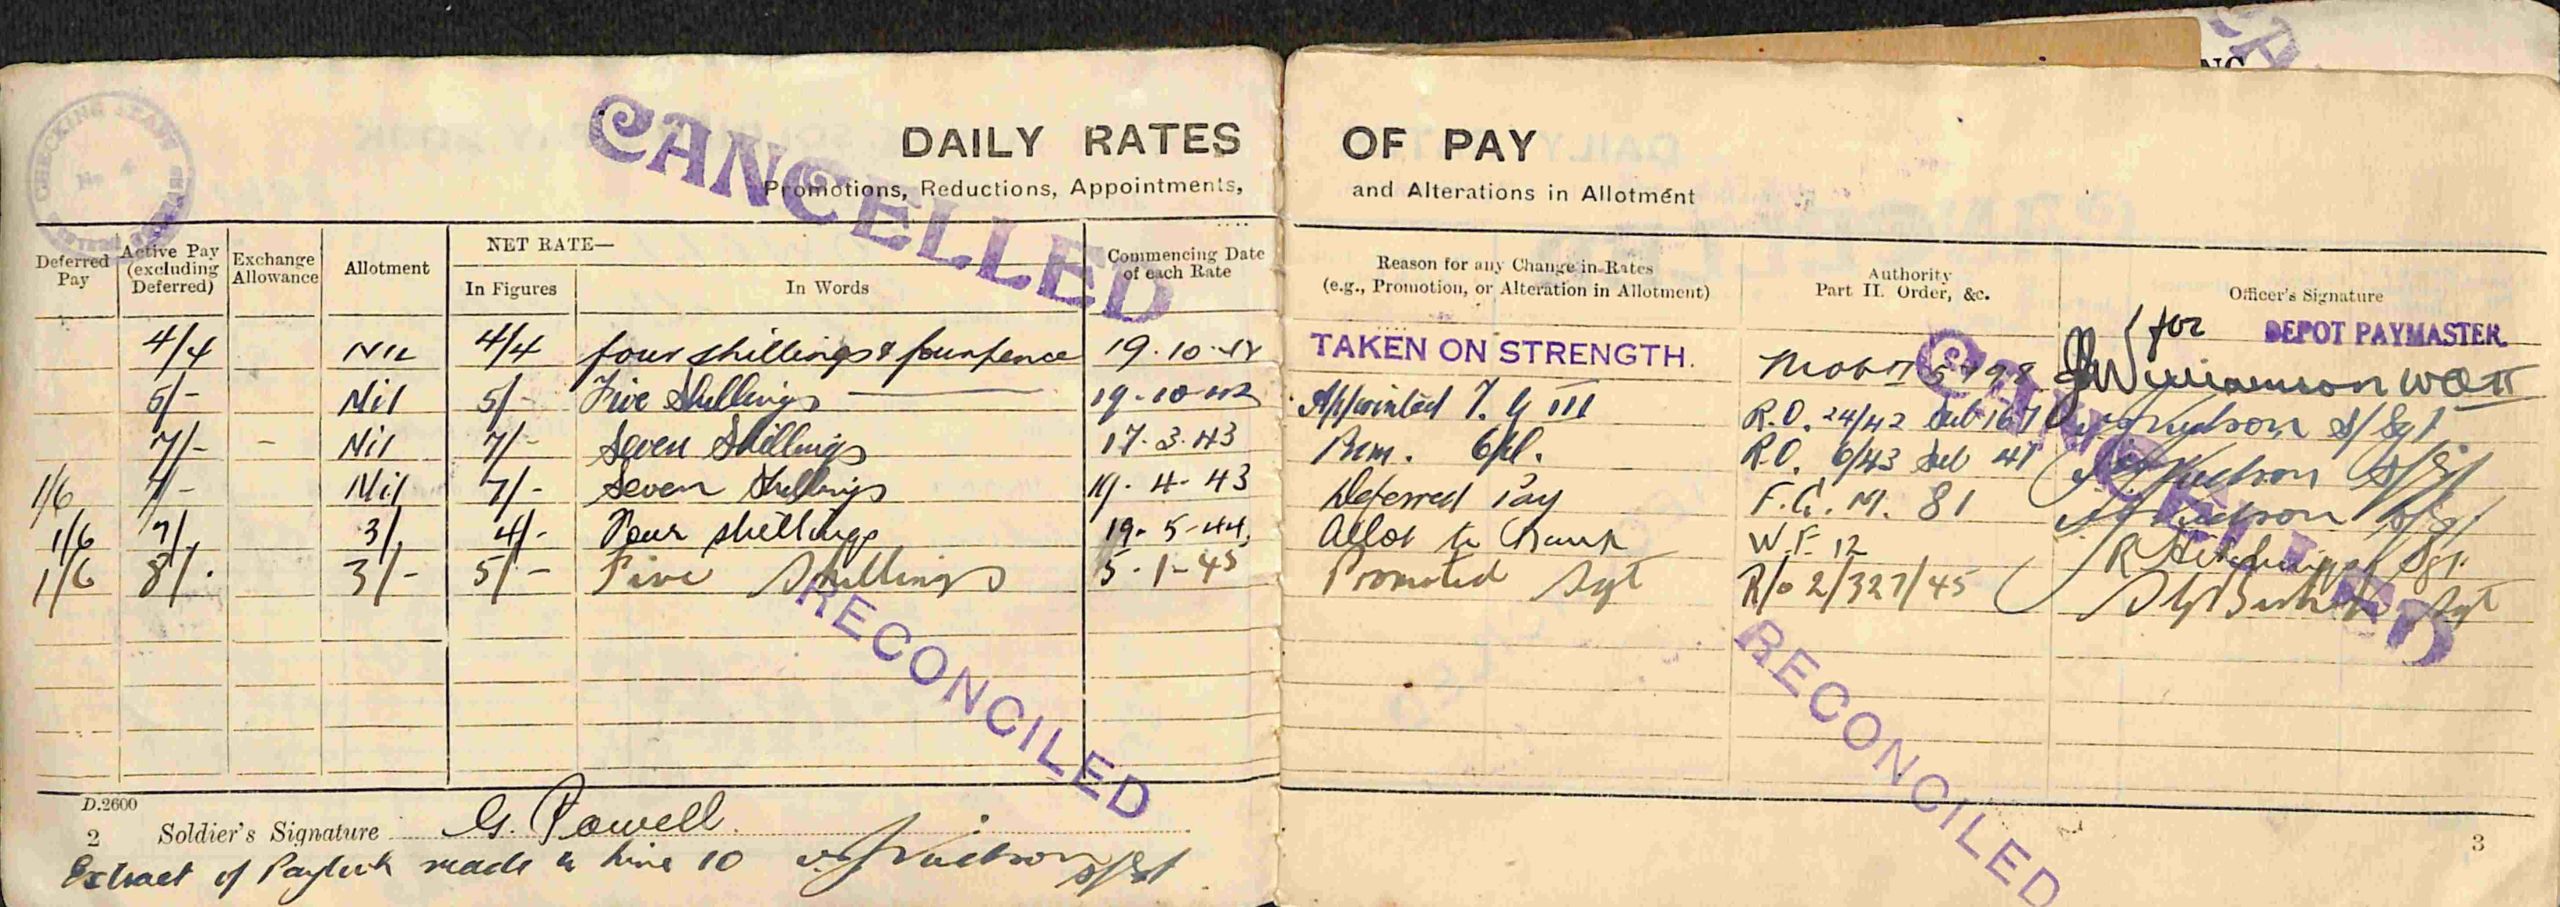 CHECKING STAFF
No. 4
CANCELLED
DAILY RATES OF PAY
Promotions, Reductions, Appointments, and Alterations in Allotment
Deferred Pay | Active Pay (excluding Deferred) | Exchange Allowance | Allotment | NET RATE— In Figures | In Words | Commencing Date of each Rate | Reason for any Change in Rates (e.g., Promotion, or Alteration in Allotment) | Authority Part II. Order, &c. | Officer's Signature
for DEPOT PAYMASTER
4/4 | Nil | 4/4 | four shillings & fourpence | 19.10.42 | TAKEN ON STRENGTH. | Mob II 5798 | Williamson WO II
5/- | Nil | 5/- | Five Shillings | 19-10-42 | Appointed T. G III | R.O. 24/42 Sub 167 | Judson S/Sgt
7/- | - | Nil | 7/- | Seven Shillings | 17.3.43 | Prom. Cpl. | R.O. 6/43 Sub 41 | Judson S/Sgt
1/6 | 7/- | Nil | 7/- | Seven Shillings | 19.4.43 | Deferred Pay | F.C.M. 81 | Judson S/Sgt
1/6 | 7/ | 3/. | 4/- | Four shillings | 19-5-44 | Allot to Bank | W.F. 12 | R Sgt.
1/6 | 8/. | 3/- | 5/- | Five Shillings | 5-1-45 | Promoted Sgt | R/o 2/327/45 | Sgt
CANCELLED
RECONCILED
RECONCILED
D.2600
2 Soldier's Signature G. Powell.
3
Extract of Paybook made to line 10 Judson S/Sgt